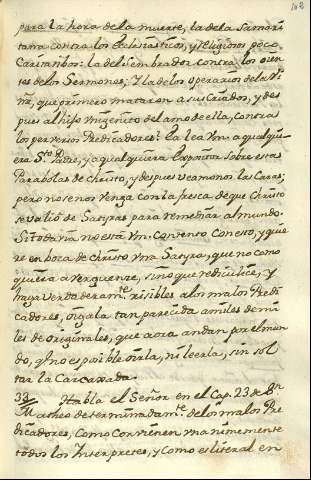 102
para la hora de la muerte, la de la Samari
tana contra los Eclesiasticos, y religiosos poco
Caritatibos: la del Sembrador contra los oien
tes de los Sermones; I la de los operarios de la Vi
ña, que primero mataron a sus Criados, y des
pues al hijo Unigenito del amo de ella, contra
los perversos Predicadores? La lea Vm. a qualqui
era Sto. Padre, y a qualquiera Expositor sobre estas
Parabolas de Christo, y despues veamonos las Caras;
pero no se nos venga con la fresca de que Christo
se valió de Satyras para remediar al mundo.
Si toda via no está Vm. contento con esto, y quie
re en boca de Christo una Satyra, que no como
quiera averguenze, sino que rediculice, y
haga verdaderamte. risibles a los malos Predi
cadores, oigala tan parecida a miles de mi
les de originales, que aora andan por el mun
do, q no es posible oirla, ni leerla, sin sol
tar la Carcaxada.
33 Habla el Señor en el Cap. 23 de Sn
Matheo determinadamte. de los malos Pre
dicadores, como convienen unanimemente
todos los Interpretes, y como es literal en